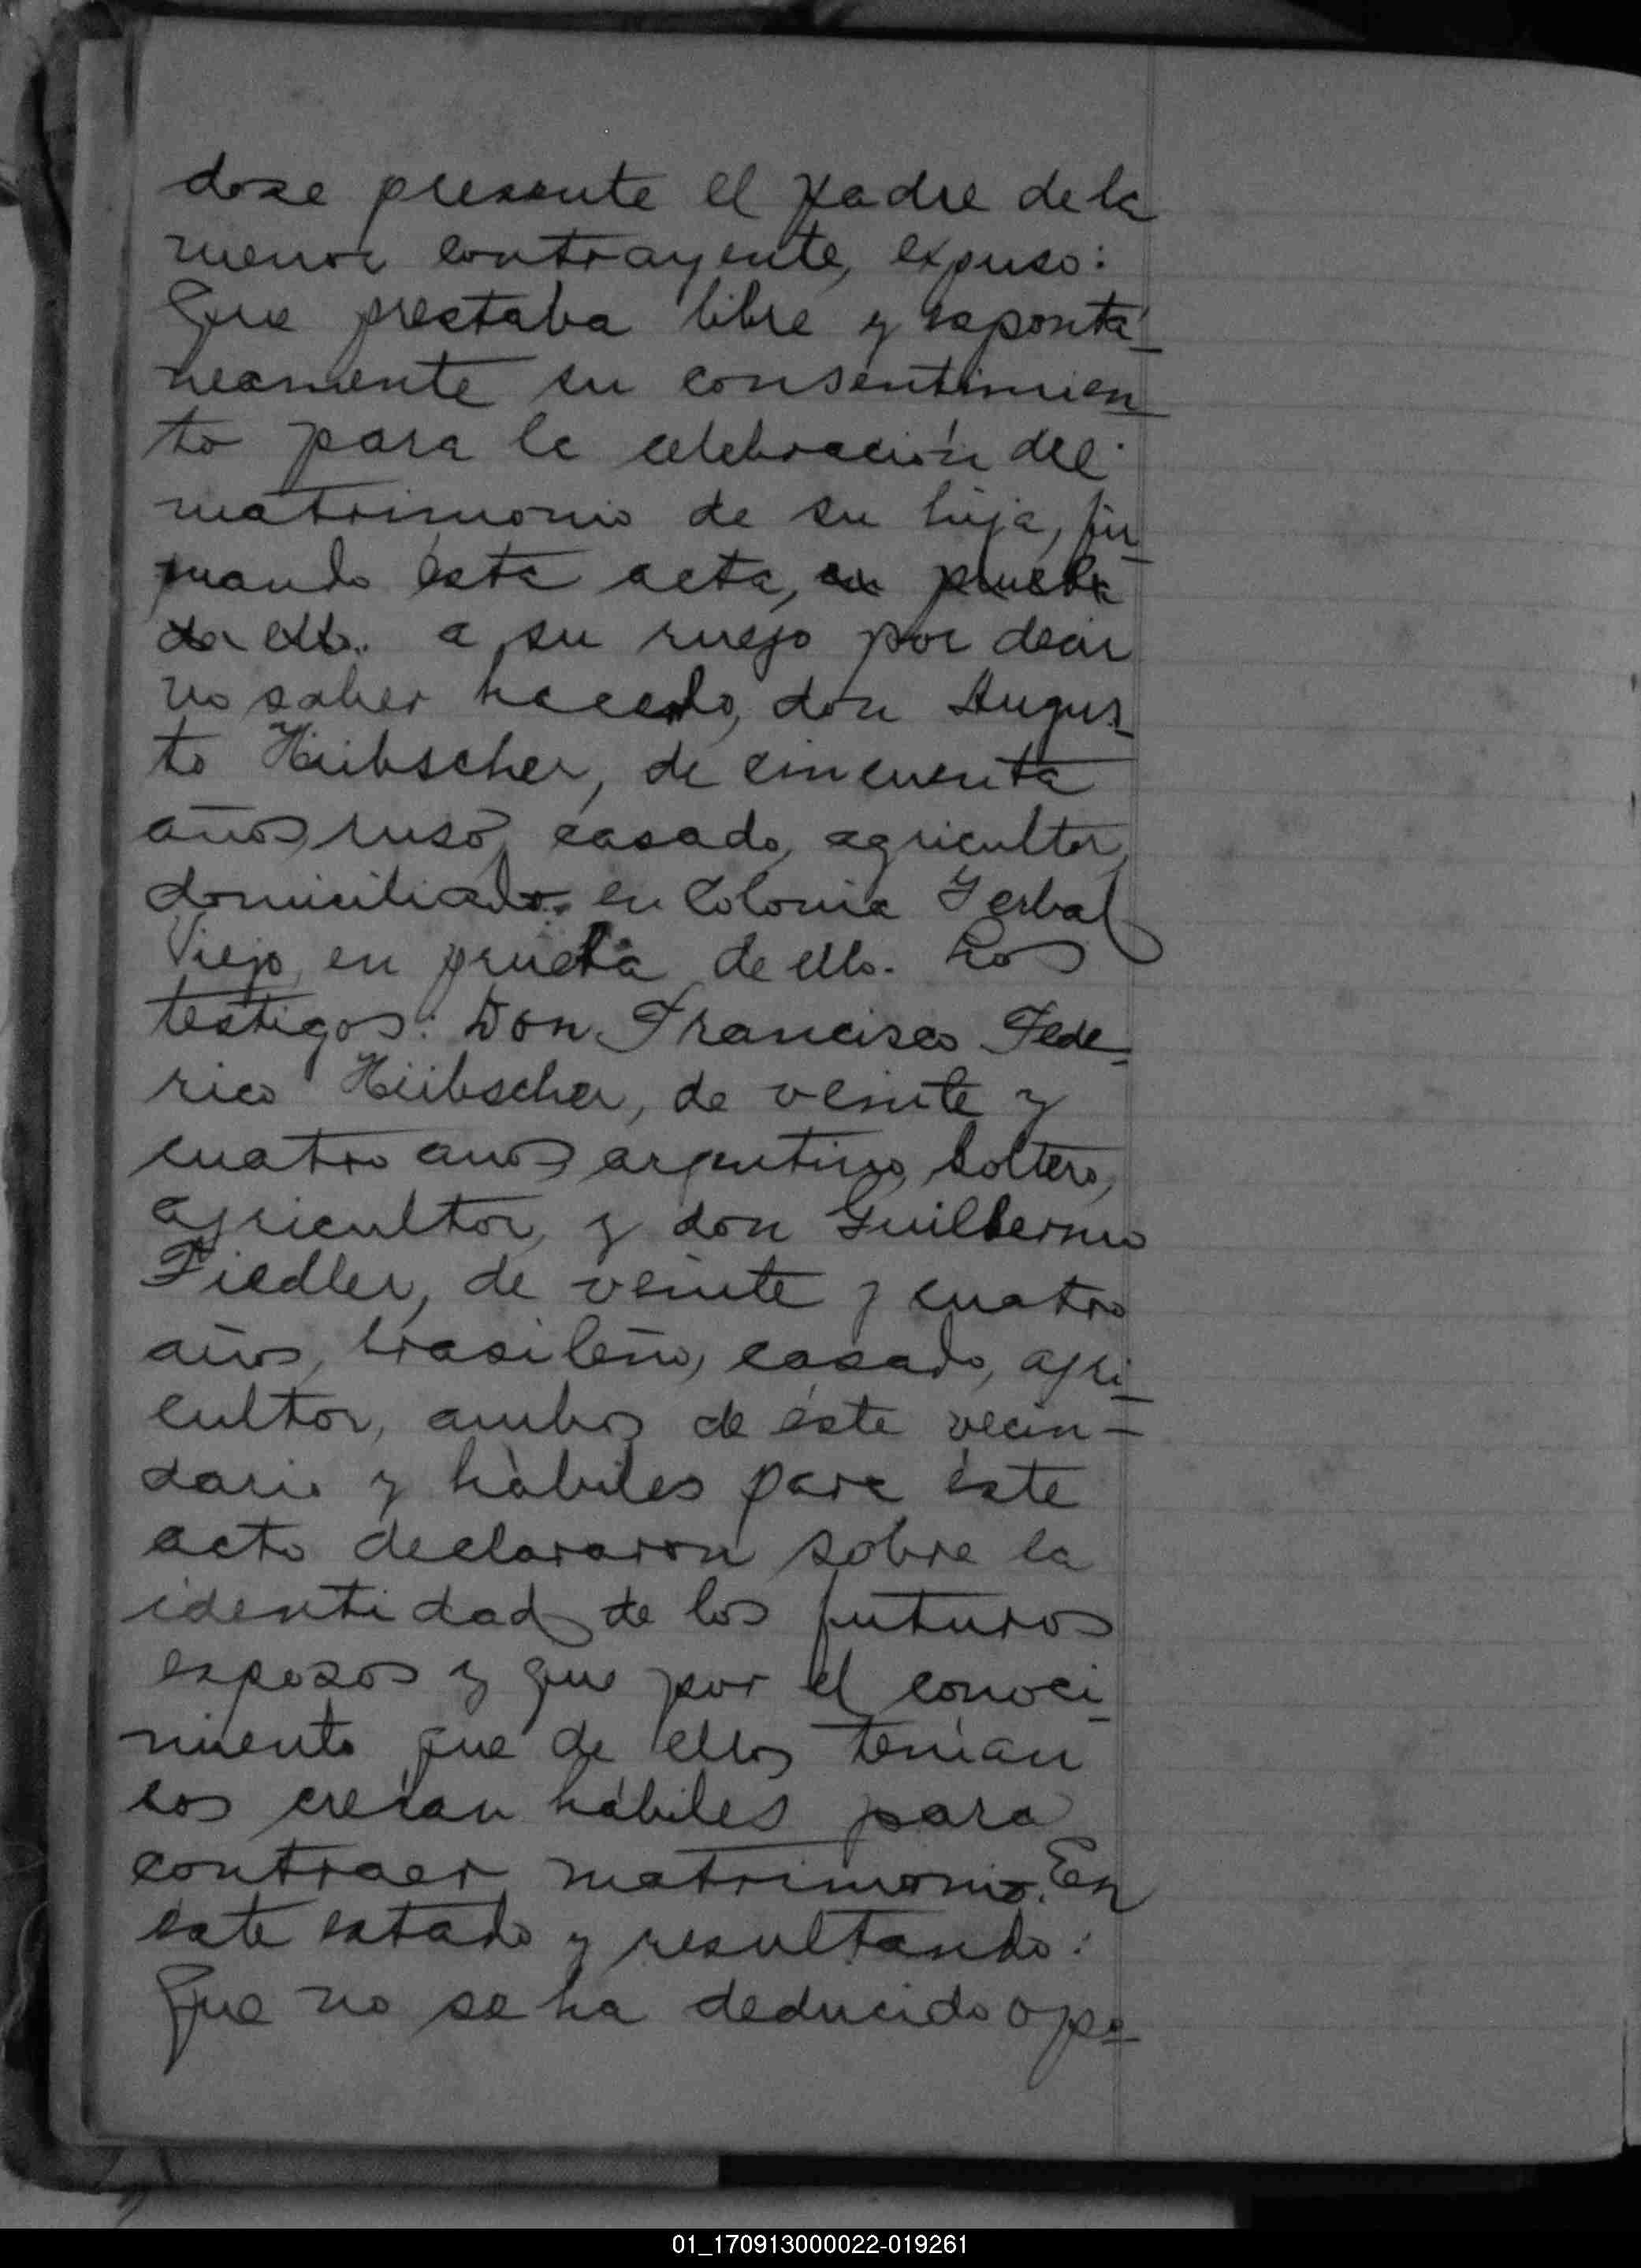 dose presente el padre de la
menor contrayente, expuso:
Que prestaba libre y espontá-
neamente su consentimien-
to para la celebración del
matrimonio de su hija, fir-
mando ésta acta, en prueba
de ello. a su ruego por decir
no saber hacerlo, don Augus-
to Hübscher, de cincuenta
años, ruso, casado, agricultor,
domiciliado en Colonia Yerbal
Viejo, en prueba de ello. Los
testigos: Don Francisco Fede-
rico Hübscher, de veinte y
cuatro años, argentino, soltero,
agricultor, y don Guillermo
Fiedler, de veinte y cuatro
años, brasileño, casado, agri-
cultor, ambos de éste vecin-
dario y hábiles para éste
acto declararon sobre la
identidad de los futuros
esposos y que por el conoci-
miento que de ellos tenían
los creían hábiles para
contraer matrimonio. En
éste estado y resultando:
Que no se ha deducido opo-
01_170913000022-019261